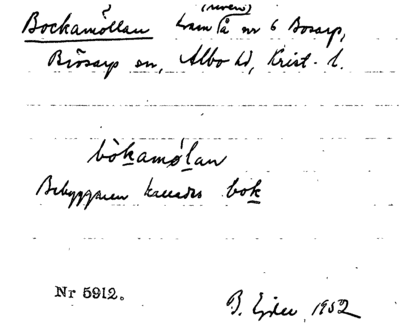 Bockamöllan kvarn på nr 6 Bosarp,
Brösarp sn, Albo hd, Krist. l.
bòkamø̀lan
Bebyggaren kallades bok
Nr 5912.
B. Ejder 1952